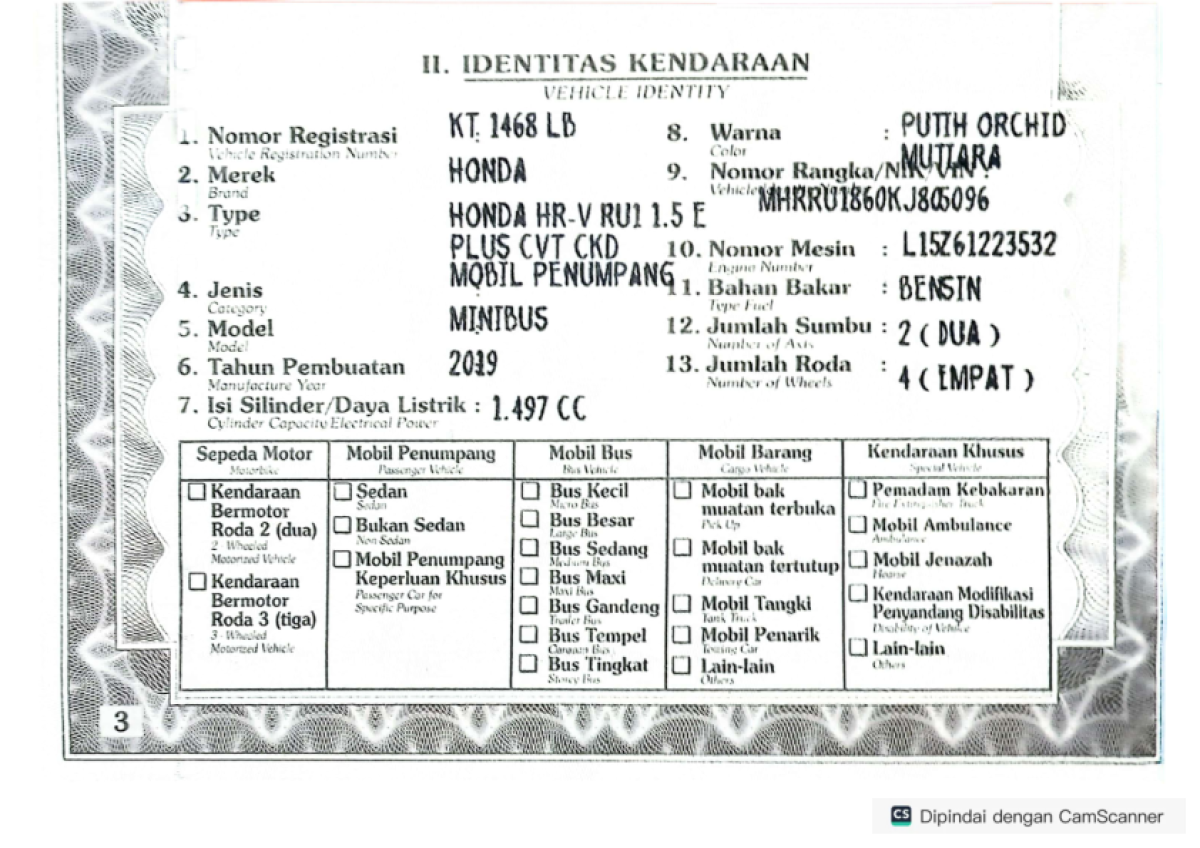 II. IDENTITAS KENDARAAN
VEHICLE IDENTITY
1. Nomor Registrasi KT 1468 LB
Vehicle Registration Number
2. Merek HONDA
Brand
3. Type HONDA HR-V RU1 1.5 E
Type
PLUS CVT CKD
4. Jenis MOBIL PENUMPANG
Category
5. Model MINIBUS
Model
6. Tahun Pembuatan 2019
Manufacture Year
7. Isi Silinder/Daya Listrik : 1.497 CC
Cylinder Capacity/Electrical Power
8. Warna : PUTIH ORCHID
Color
MUTIARA
9. Nomor Rangka/NIK/VIN :
10. Nomor Mesin : L15Z61223532
Engine Number
11. Bahan Bakar : BENSIN
Type Fuel
12. Jumlah Sumbu : 2 ( DUA )
Number of Axis
13. Jumlah Roda : 4 ( EMPAT )
Number of Wheels
Sepeda Motor
Motorbike
Kendaraan
Bermotor
Roda 2 (dua)
2 - Wheeled
Motorized Vehicle
Kendaraan
Bermotor
Roda 3 (tiga)
3 - Wheeled
Motorized Vehicle
Mobil Penumpang
Passenger Vehicle
Sedan
Sedan
Bukan Sedan
Non Sedan
Mobil Penumpang
Keperluan Khusus
Passenger Car for
Specific Purpose
Mobil Bus
Bus Vehicle
Bus Kecil
Micro Bus
Bus Besar
Large Bus
Bus Sedang
Medium Bus
Bus Maxi
Maxi Bus
Bus Gandeng
Trailer Bus
Bus Tempel
Caravan Bus
Bus Tingkat
Storey Bus
Mobil Barang
Cargo Vehicle
Mobil bak
muatan terbuka
Pick Up
Mobil bak
muatan tertutup
Delivery Car
Mobil Tangki
Tank Truck
Mobil Penarik
Towing Car
Lain-lain
Others
Kendaraan Khusus
Special Vehicle
Pemadam Kebakaran
Fire Extinguisher Truck
Mobil Ambulance
Ambulance
Mobil Jenazah
Hearse
Kendaraan Modifikasi
Penyandang Disabilitas
Disability of Vehicle
Lain-lain
Others
3
CS Dipindai dengan CamScanner